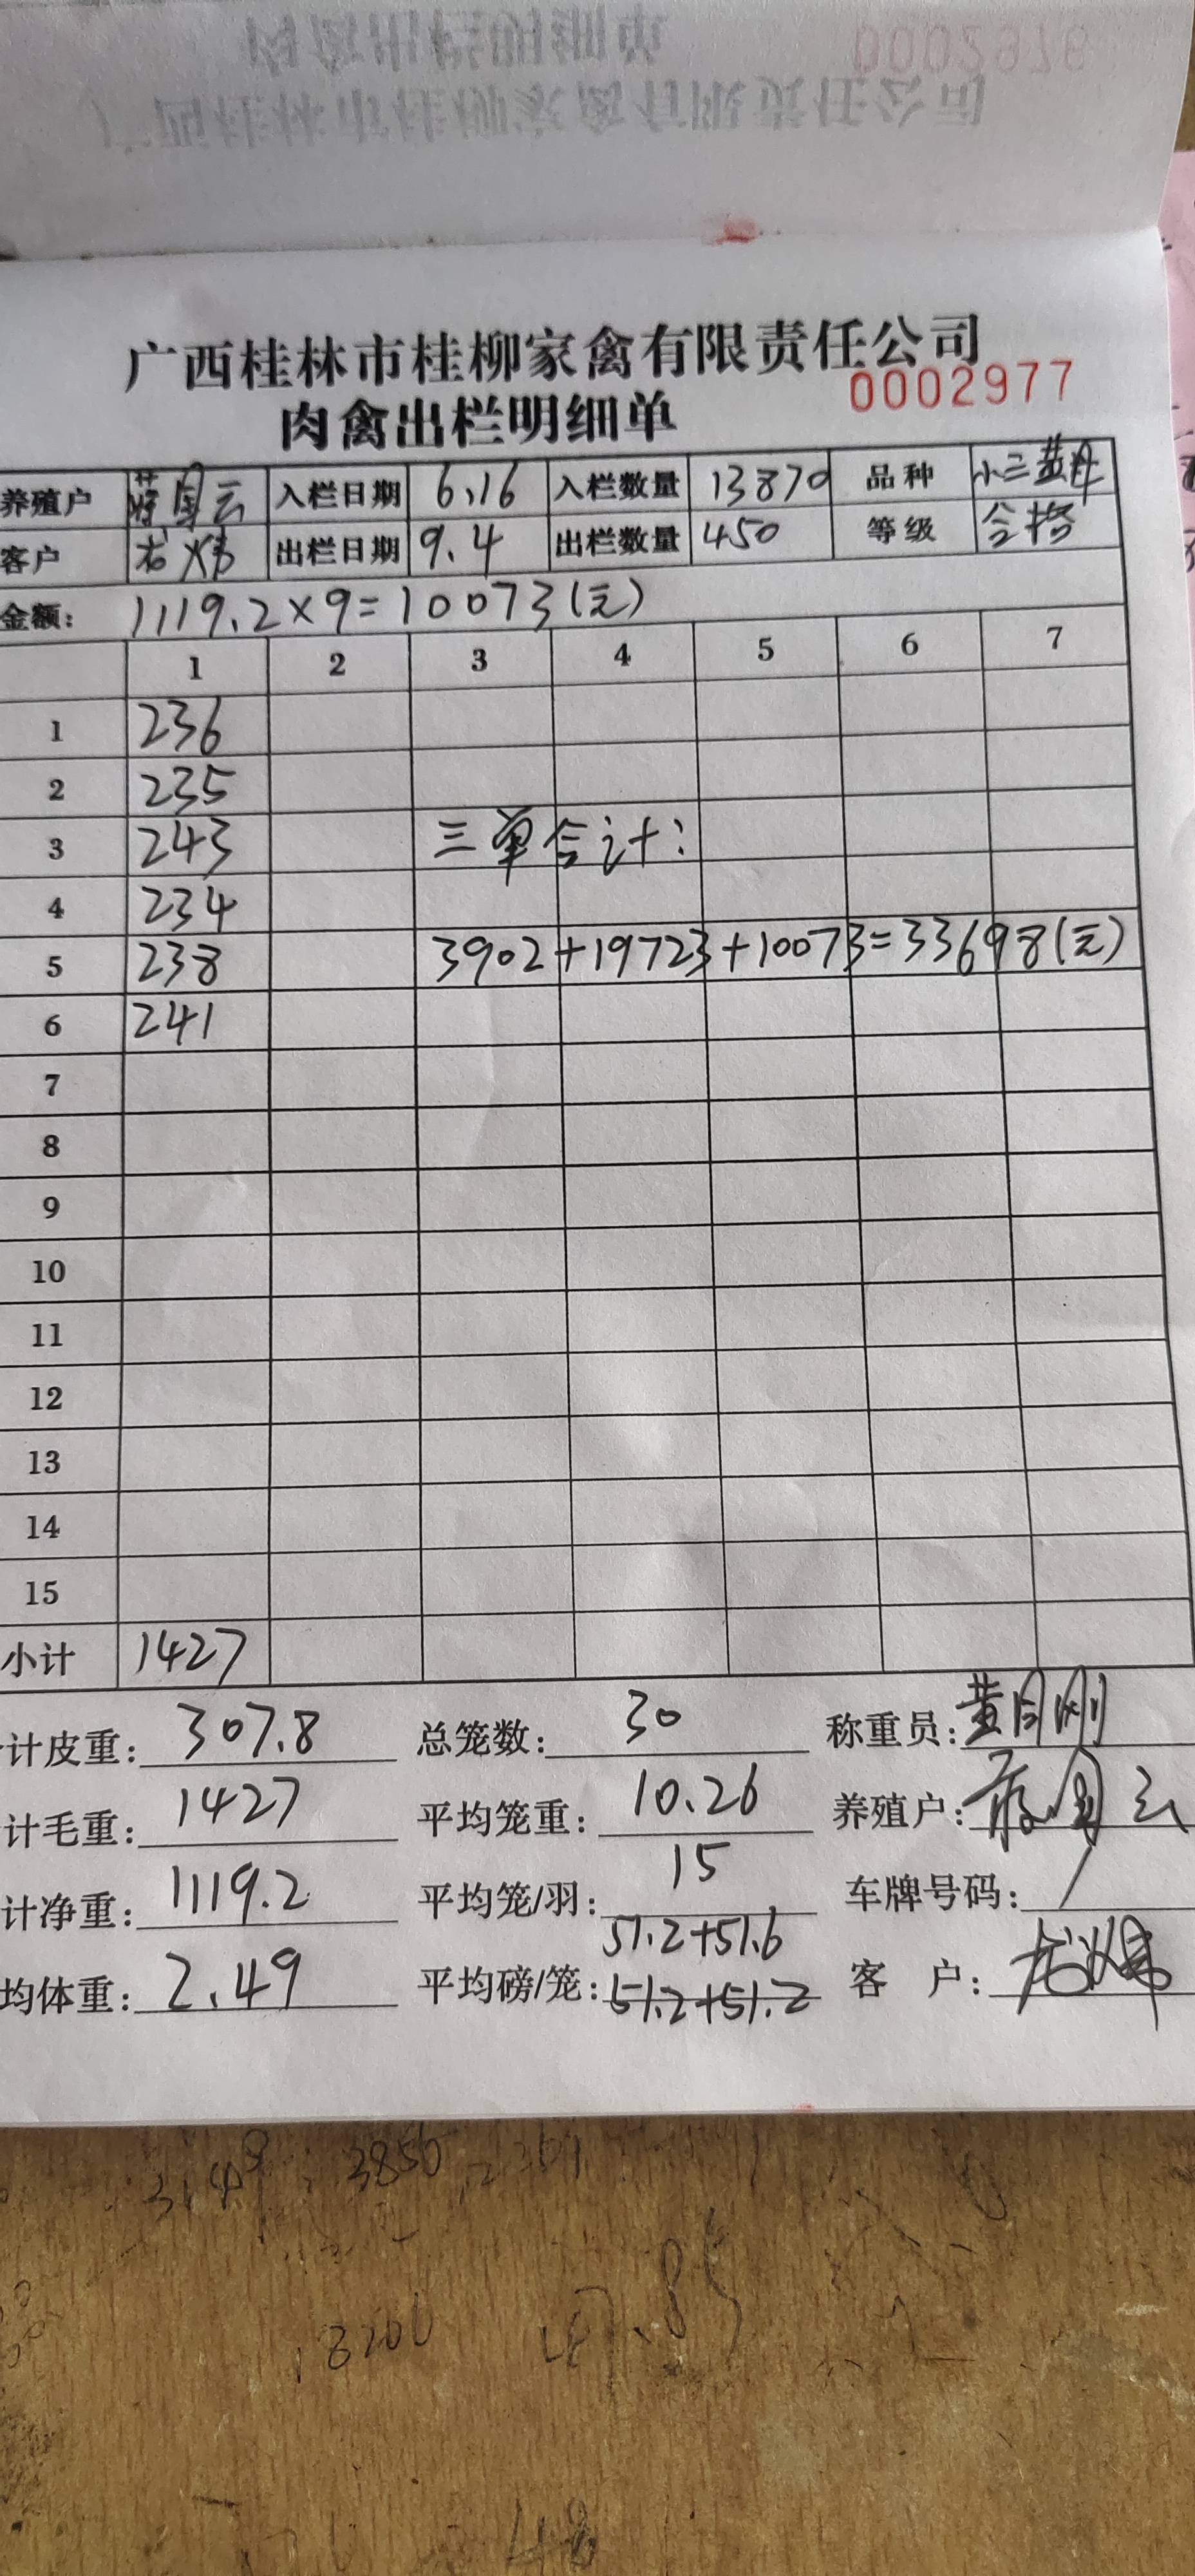 0002976
广西桂林市桂柳家禽有限责任公司
0002977
肉禽出栏明细单
养殖户 蒋国云 入栏日期 6.16 入栏数量 13870 品种 小三黄
客户 入栏日期 9.4 出栏数量 450 等级 合格
金额: 1119.2×9=10073(元)
1 2 3 4 5 6 7
1 236
2 235
3 243 三单合计:
4 234
5 238 3902+19723+10073=33698(元)
6 241
7
8
9
10
11
12
13
14
15
小计 1427
计皮重: 307.8 总笼数: 30 称重员:
计毛重: 1427 平均笼重: 10.26 养殖户: 蒋国云
计净重: 1119.2 平均笼/羽: 15 车牌号码: /
51.2+51.6
均体重: 2.49 平均磅/笼: 51.2+51.2 客 户:
3850
48